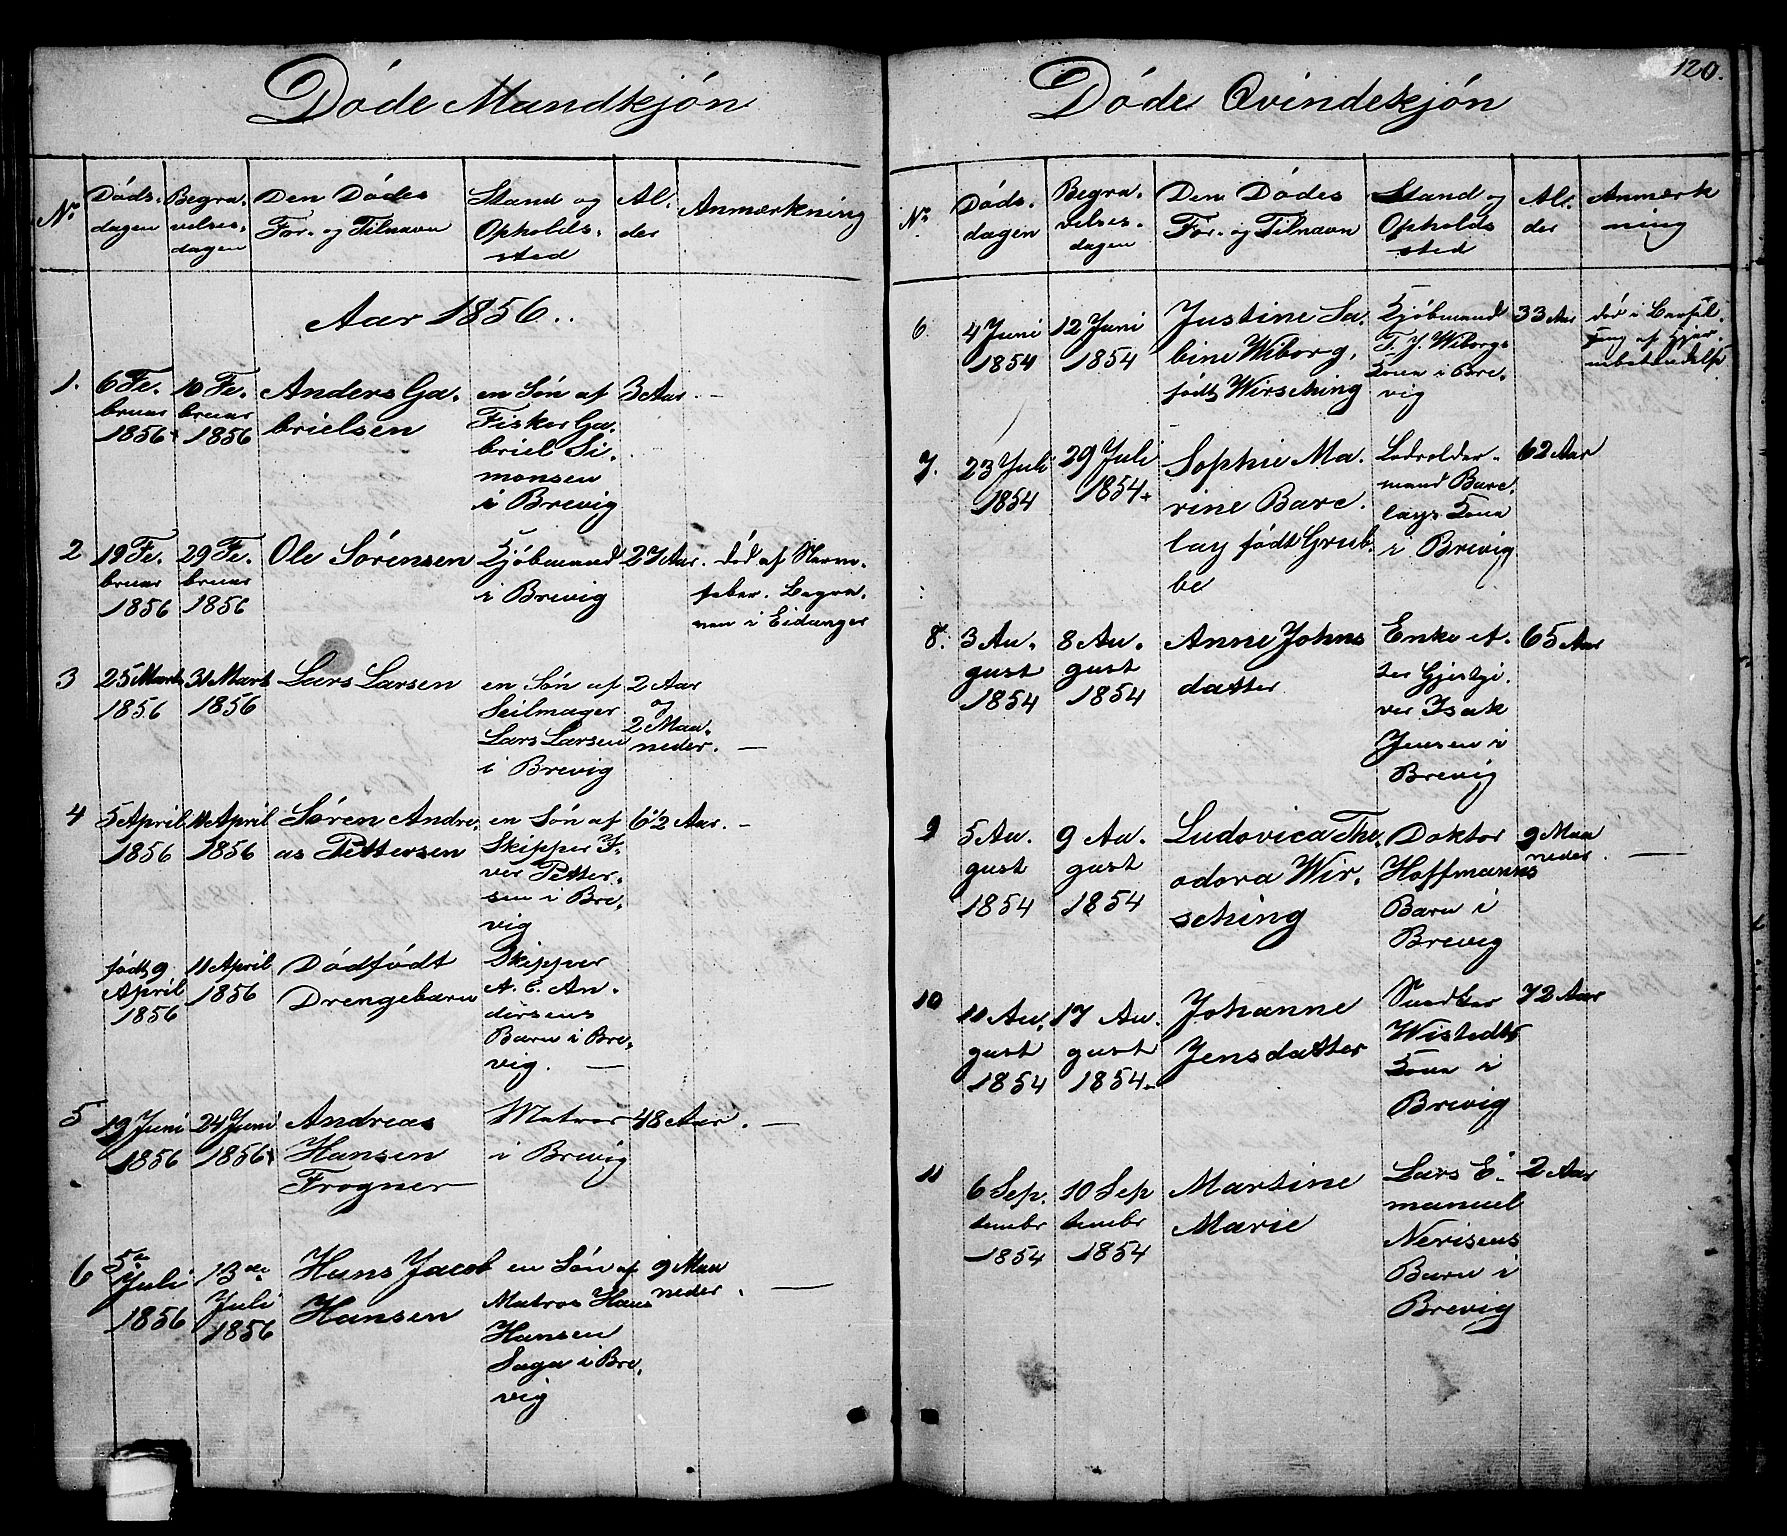 Döde Mandkjön
No
Döds-
dagen
Begra-
velses-
dagen
Den Dödes
For- og Tilnavn
Stand og
Opholds-
sted
Al-
der
Anmærkning
Aar 1856.
1.
6 Fe-
bruar
1856
10 Fe-
bruar
1856
Anders Ga-
brielsen
en Sön af
Fisker Ga-
briel Si-
monsen
i Brevig
3 Aar. —
2
19 Fe-
bruar
1856
29 Fe-
bruar
1856
Ole Sörensen
Kjöbmand
i Brevig
27 Aar.
död af Nerve-
feber. Begra-
ven i Eidanger
3
25 Marts
1856
31 Marts
1856
Lars Larsen
en Sön af
Seilmager
Lars Larsen
i Brevig
2 Aar
og
2 Maa-
neder. —
4
5 April
1856
11 April
1856
Sören Andre-
as Pettersen
en Sön af
Skipper I-
ver Petter-
sen i Bre-
vig
6 1/2 Aar. —
födt 9
April
1856
11 April
1856
Dödfödt
Drengebarn
Skipper
A. C. An-
dersens
Barn i Bre-
vig. —
5
19 Juni
1856
24 Juni
1856
Andreas
Hansen
Frogner
Matros
i Brevig
48 Aar. —
6
5te
Juli
1856
13de
Juli
1856
Hans Jacob
Hansen
en Sön af
Matros Hans
Hansen
Saga i Bre-
vig
9 Maa
neder. —
120.
Döde Qvindekjön
No
Döds-
dagen
Begra-
velses-
dagen
Den Dödes
For- og Tilnavn
Stand og
Opholds
sted
Al-
der
Anmærk
ning
6
4 Juni
1854
12 Juni
1854
Justine Sa-
bine Wiborg,
födt Wirsching
Kjöbmand
T. J. Wiborgs
Kone i Bre-
vig
33 Aar
död i Barsel-
seng af
7.
23 Juli
1854
29 Juli
1854
Sophie Ma-
rine Barc-
lay födt Grub-
be
Lodsolder-
mand Barc-
lays Kone
i Brevig
62 Aar
8.
3 Au-
gust
1854
8 Au-
gust
1854
Anne Johns
datter
Enke ef-
ter Gjestgi-
ver Isak
Jensen i
Brevig
65 Aar
9
5 Au-
gust
1854
9 Au-
gust
1854
Ludovica The-
odora Wir-
sching
Doktor
Hoffmanns
Barn i
Brevig
9 Maa
neder. —
10
11 Au-
gust
1854
17 Au-
gust
1854
Johanne
Jensdatter
Snedker
Wistedts
Kone i
Brevig
72 Aar
11
6 Sep-
tembr
1854
10 Sep
tembr
1854
Martine
Marie
Lars E-
manuel
Nerisens
Barn i
Brevig
2 Aar